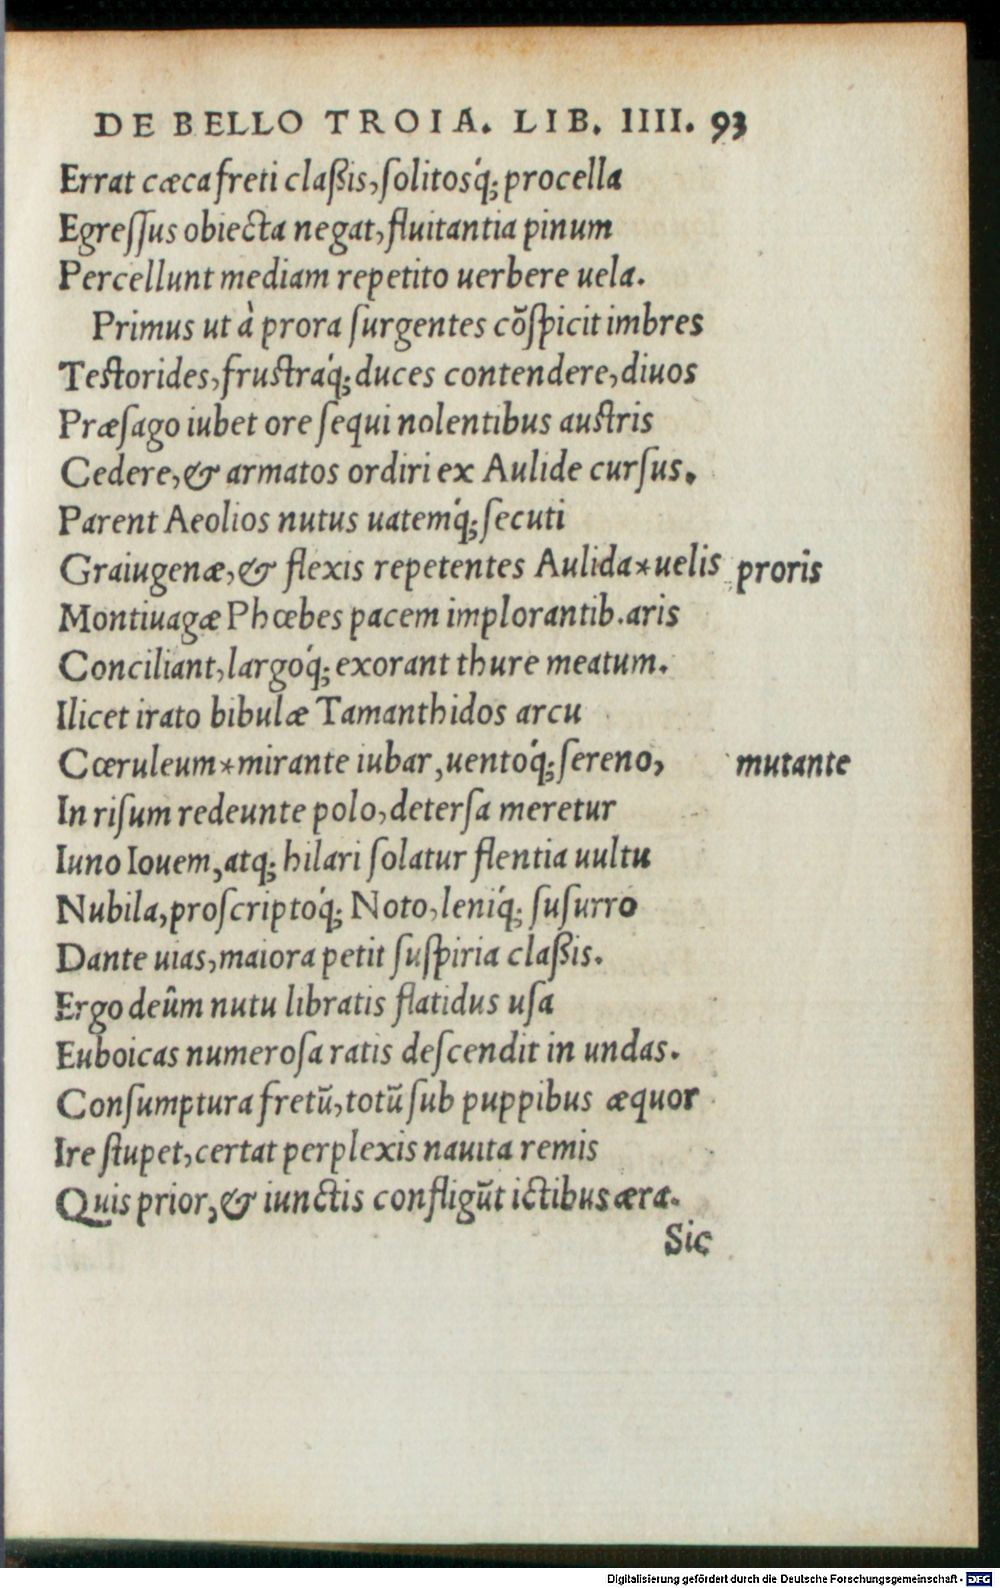 DE BELLO TROIA. LIB. IIII. 93
Errat cæca freti claßis, ſolitosq́; procella
Egreſſus obiecta negat, fluitantia pinum
Percellunt mediam repetito uerbere uela.
Primus ut à prora ſurgentes cõſpicit imbres
Teſtorides, fruſtraq́; duces contendere, diuos
Præſago iubet ore ſequi nolentibus auſtris
Cedere, & armatos ordiri ex Aulide curſus.
Parent Aeolios nutus uatemq́; ſecuti
Graiugenæ, & flexis repetentes Aulida*uelis proris
Montiuagæ Phœbes pacem implorantib. aris
Conciliant, largoq́; exorant thure meatum.
Ilicet irato bibulæ Tamanthidos arcu
Cœruleum*mirante iubar, uentoq́; ſereno, mutante
In riſum redeunte polo, deterſa meretur
Iuno Iouem, atq; hilari ſolatur flentia uultu
Nubila, proſcriptoq́; Noto, leniq́; ſuſurro
Dante uias, maiora petit ſuſpiria claßis.
Ergo deûm nutu libratis flatidus uſa
Euboicas numeroſa ratis deſcendit in undas.
Conſumptura fretũ, totũ ſub puppibus æquor
Ire ſtupet, certat perplexis nauita remis
Quis prior, & iunctis confligũt ictibus æra.
Sic
Digitalisierung gefördert durch die Deutsche Forschungsgemeinschaft - DFG